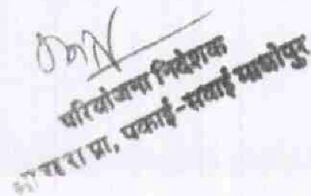 परियोजना निदेशक
भा रा रा प्रा, पकाई-सवाई माधोपुर